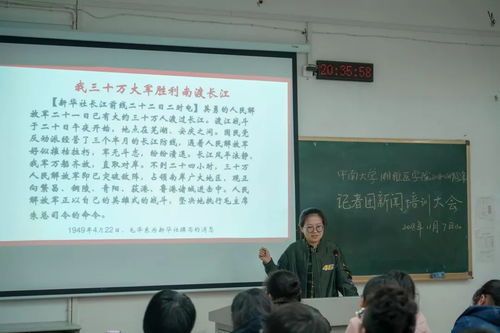 我三十万大军胜利南渡长江
【新华社长江前线二十二日二时电】英勇的人民解
放军二十一日已有大约三十万人渡过长江。渡江战斗
于二十日午夜开始,地点在芜湖、安庆之间。国民党
反动派经营了三个半月的长江防线,遇着人民解放军
好似摧枯拉朽,军无斗志,纷纷溃退。长江风平浪静,
我军万船齐放,直取对岸,不到二十四小时,三十万
人民解放军即已突破敌阵,占领南岸广大地区,现正
向繁昌、铜陵、青阳、荻港、鲁港诸城进击中。人民
解放军正以自己的英雄式的战斗,坚决地执行毛主席
朱总司令的命令。
1949年4月22日,毛泽东为新华社撰写的消息
20:35:58
中南大学湘雅医学院
记者团新闻培训大会
11月7日